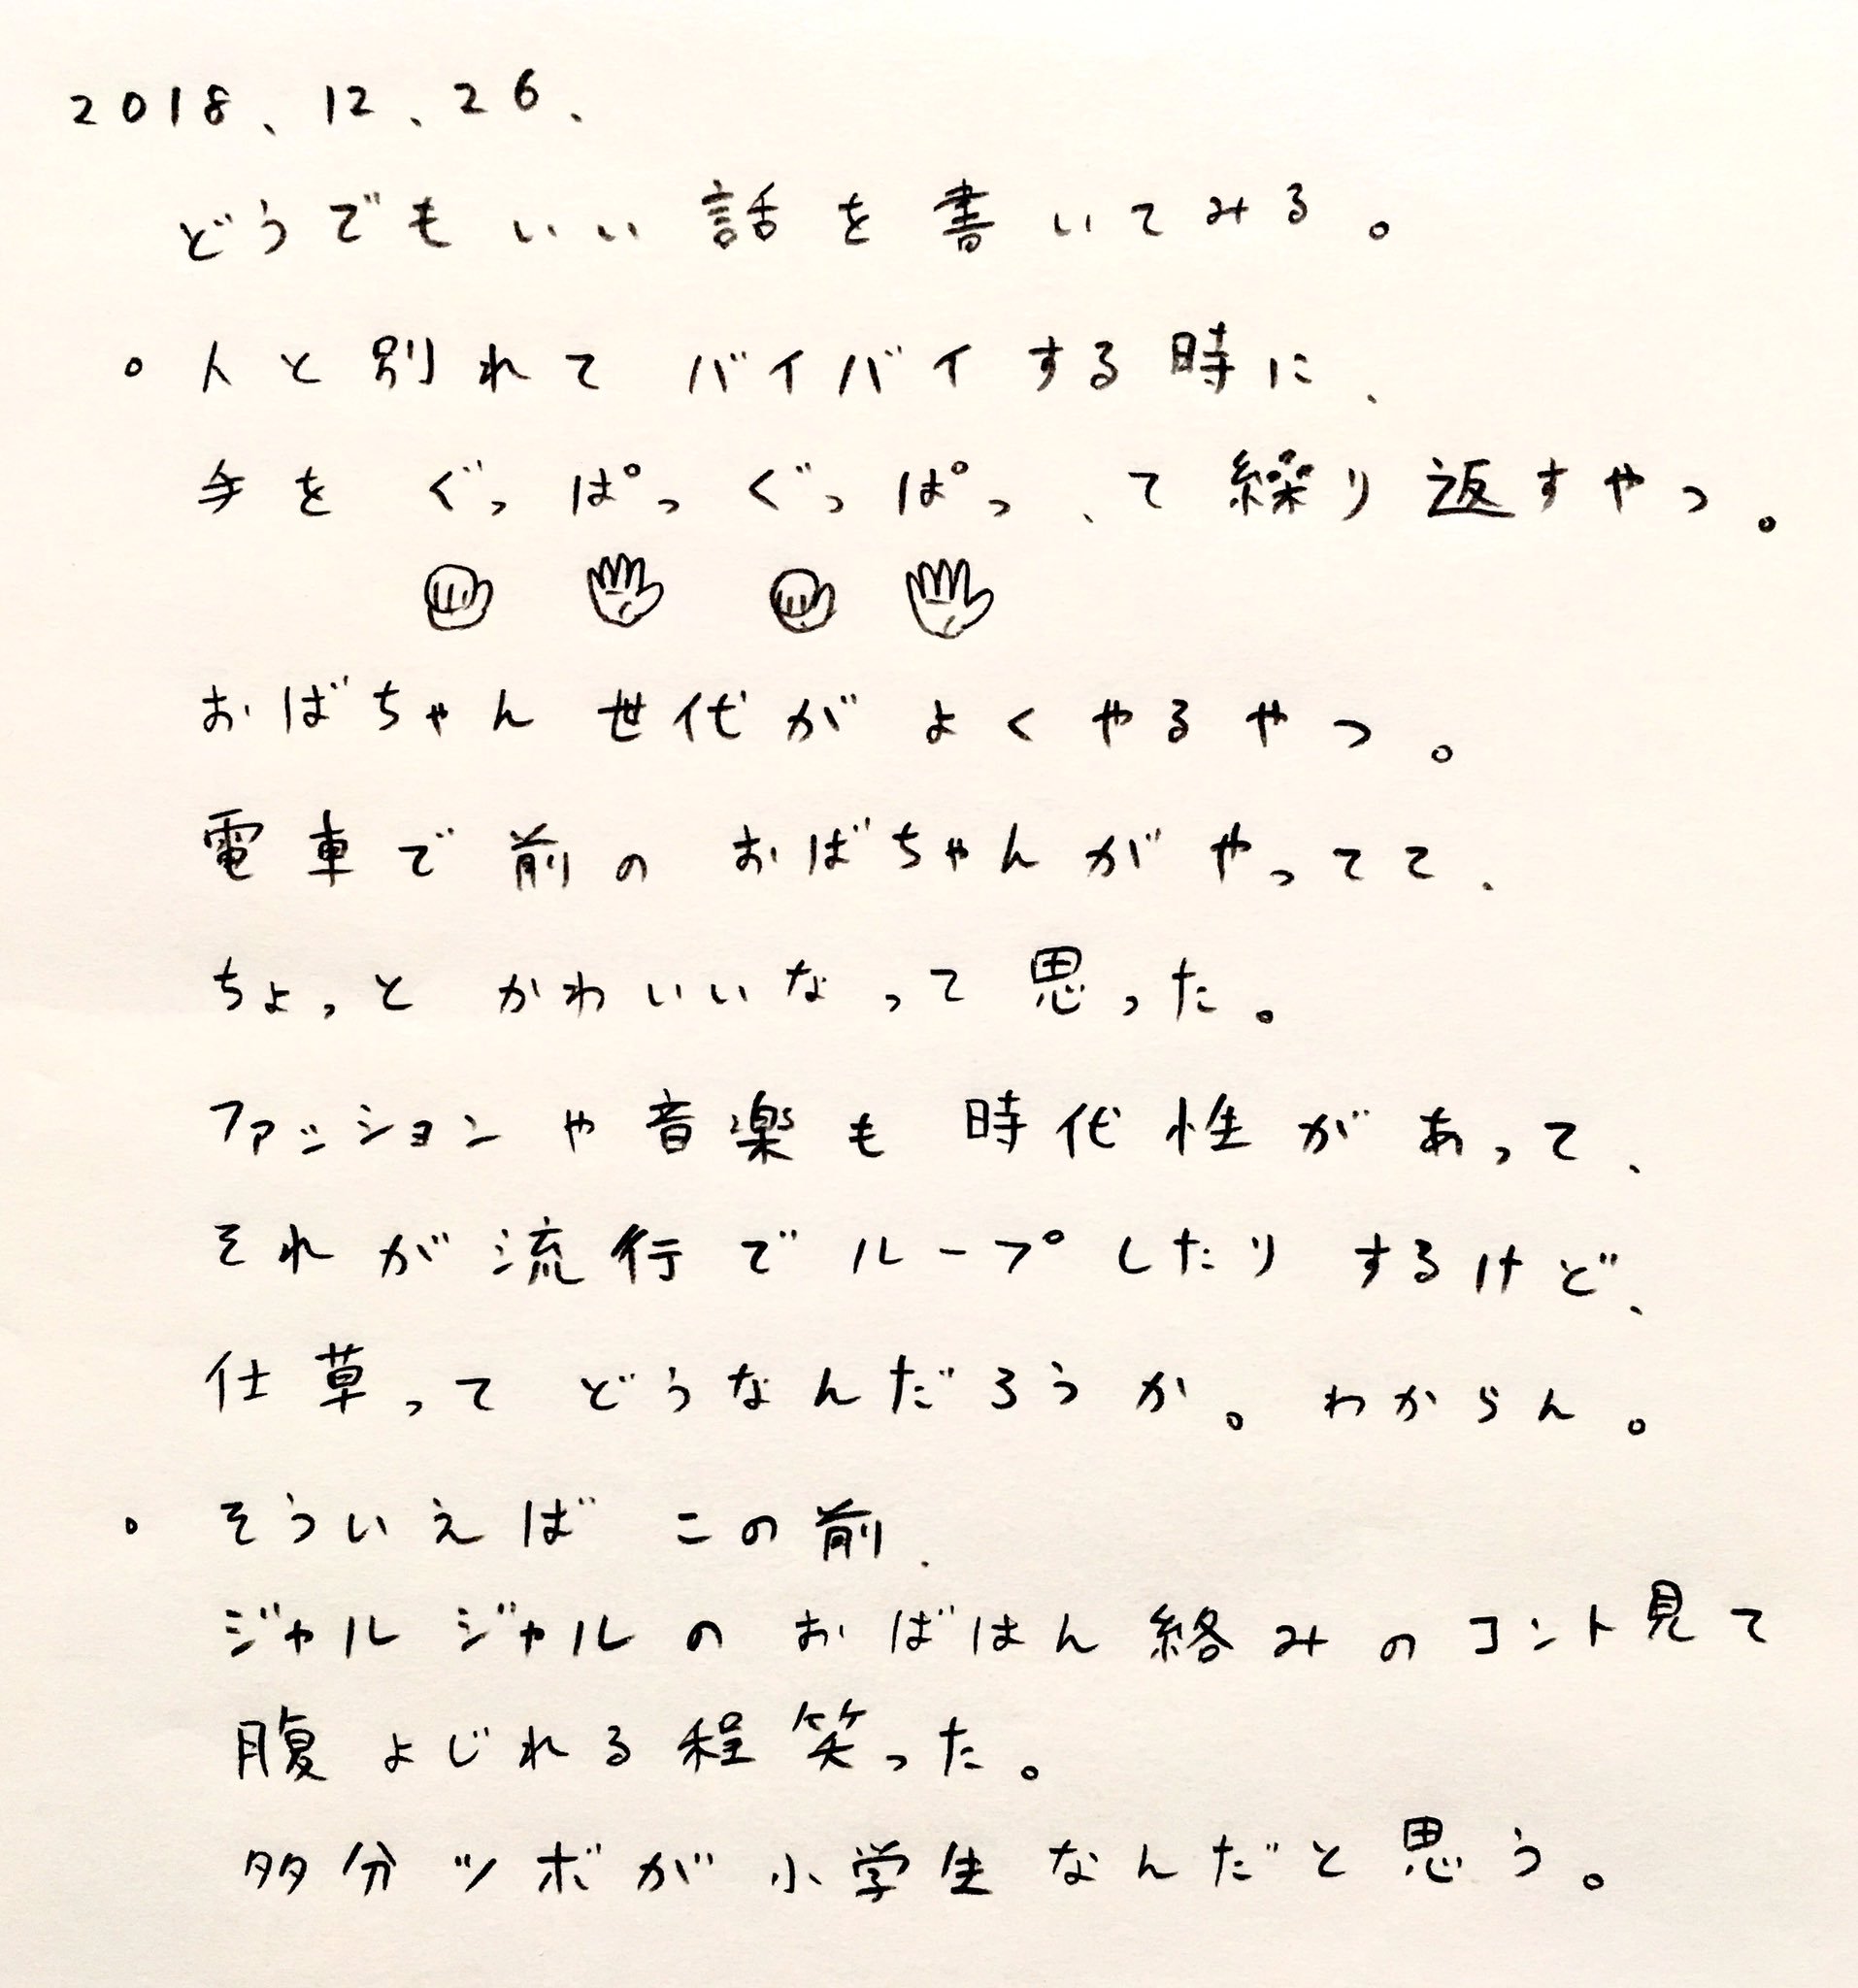 2018、12、26、
どうでもいい話を書いてみる。
。人と別れてバイバイする時に、
手を ぐっぱっぐっぱっ、て繰り返すやつ。
おばちゃん世代がよくやるやつ。
電車で前のおばちゃんがやってて、
ちょっとかわいいなって思った。
ファッションや音楽も時代性があって、
それが流行でループしたりするけど、
仕草ってどうなんだろうか。わからん。
。そういえばこの前、
ジャルジャルのおばはん絡みのコント見て
腹よじれる程笑った。
多分ツボが小学生なんだと思う。